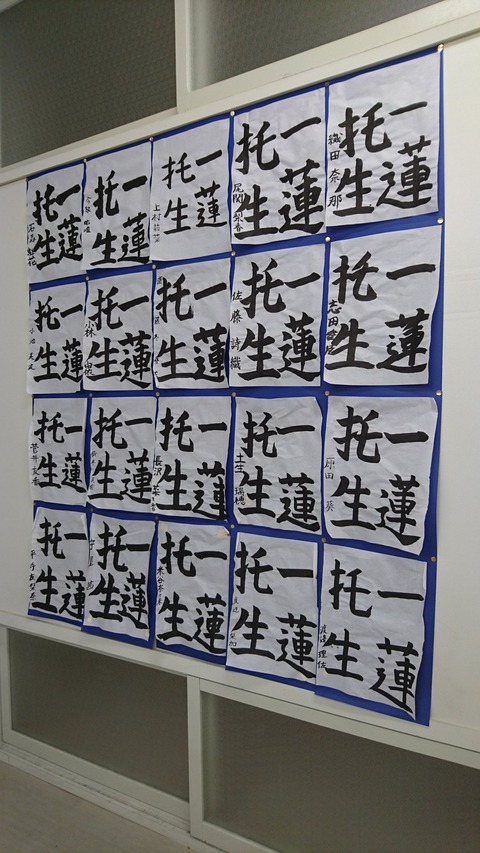 一蓮
托生
織田奈那
一蓮
托生
尾関梨香
一蓮
托生
上村
一蓮
托生
一蓮
托生
石森虹花
一蓮
托生
志田愛佳
一蓮
托生
佐藤詩織
一蓮
托生
一蓮
托生
小林由依
一蓮
托生
小池美波
一蓮
托生
原田葵
一蓮
托生
土生瑞穂
一蓮
托生
長沢菜々香
一蓮
托生
一蓮
托生
菅井友香
一蓮
托生
渡邉理佐
一蓮
托生
一蓮
托生
米谷奈々未
一蓮
托生
守屋茜
一蓮
托生
平手友梨奈